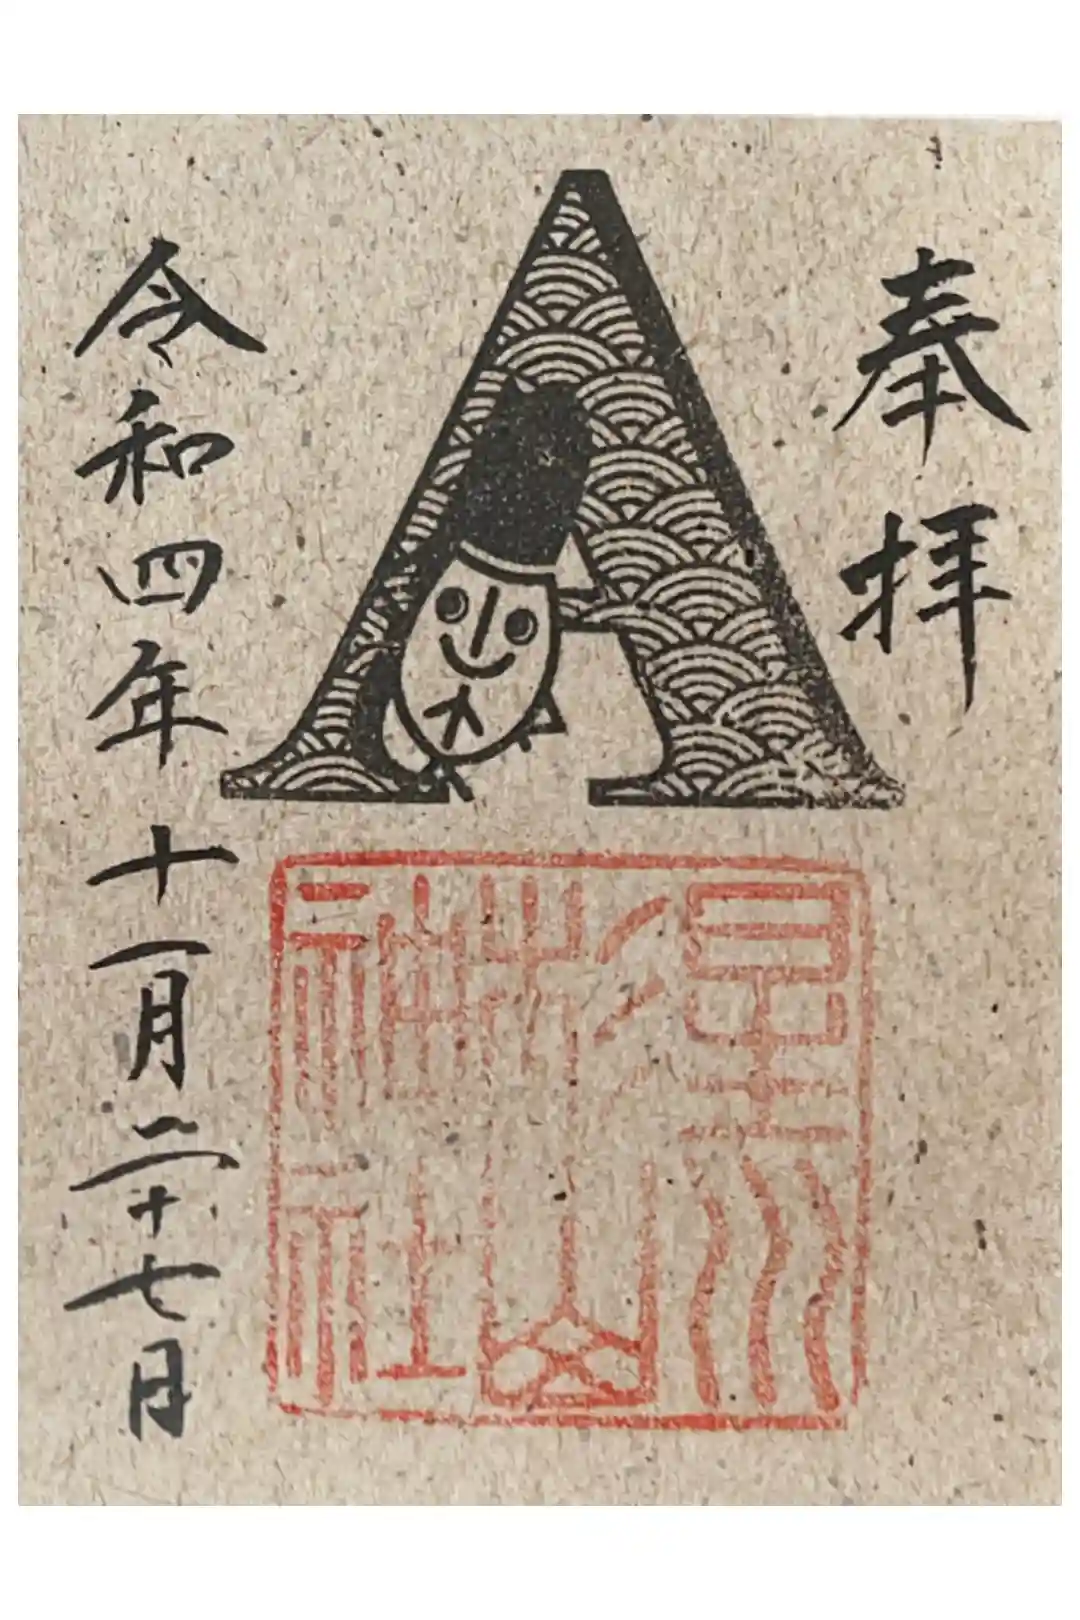 奉拝
A
令和四年十一月二十七日
神社